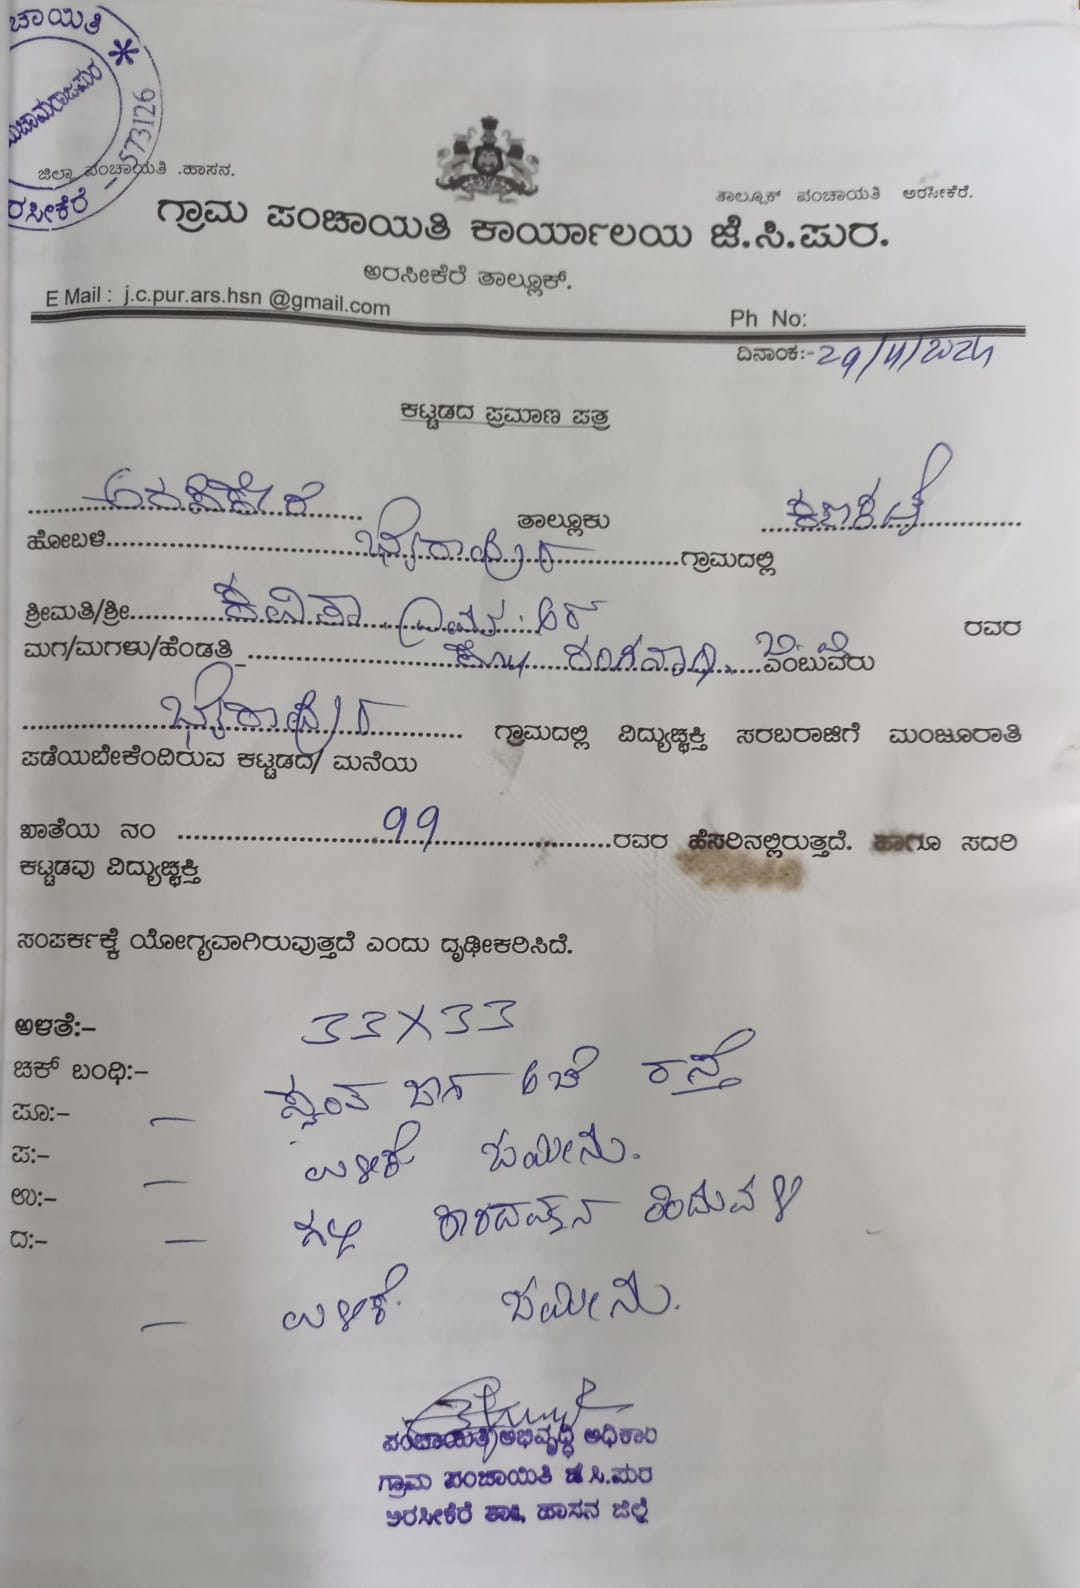 ಚಾಯಿತಿ *
ಚಾಮರಾಜಪುರ
573126
ರಸೀಕೆರೆ
ಜಿಲ್ಲಾ ಪಂಚಾಯಿತಿ .ಹಾಸನ.
ತಾಲ್ಲೂಕ್ ಪಂಚಾಯತಿ ಅರಸೀಕೆರೆ.
ಗ್ರಾಮ ಪಂಚಾಯತಿ ಕಾರ್ಯಾಲಯ ಜೆ.ಸಿ.ಪುರ.
ಅರಸೀಕೆರೆ ತಾಲ್ಲೂಕ್.
E Mail : j.c.pur.ars.hsn @gmail.com
Ph No:
ದಿನಾಂಕ:-29/11/2024
ಕಟ್ಟಡದ ಪ್ರಮಾಣ ಪತ್ರ
ಅರಸೀಕೆರೆ ತಾಲ್ಲೂಕು ಕಣಕಟ್ಟೆ
ಹೋಬಳಿ ಗ್ರಾಮದಲ್ಲಿ
ಶ್ರೀಮತಿ/ಶ್ರೀ ಕವಿತಾ ರವರ
ಮಗ/ಮಗಳು/ಹೆಂಡತಿ ಕೋಂ ರಂಗನಾಥ ಎಂಬುವರು
ಗ್ರಾಮದಲ್ಲಿ ವಿದ್ಯುಚ್ಛಕ್ತಿ ಸರಬರಾಜಿಗೆ ಮಂಜೂರಾತಿ
ಪಡೆಯಬೇಕೆಂದಿರುವ ಕಟ್ಟಡದ/ ಮನೆಯ
ಖಾತೆಯ ನಂ 99 ರವರ ಹೆಸರಿನಲ್ಲಿರುತ್ತದೆ. ಹಾಗೂ ಸದರಿ
ಕಟ್ಟಡವು ವಿದ್ಯುಚ್ಛಕ್ತಿ
ಸಂಪರ್ಕಕ್ಕೆ ಯೋಗ್ಯವಾಗಿರುವುತ್ತದೆ ಎಂದು ದೃಢೀಕರಿಸಿದೆ.
ಅಳತೆ:- 33X33
ಚಕ್ ಬಂಧಿ:-
ಪೂ:- — ಸ್ವಂತ ಜಾಗ ರಸ್ತೆ
ಪ:- — ಉಳಿಕೆ ಜಮೀನು.
ಉ:- — ಗಲ್ಲಿ
ದ:- — ಉಳಿಕೆ ಜಮೀನು.
ಪಂಚಾಯಿತಿ ಅಭಿವೃದ್ಧಿ ಅಧಿಕಾರಿ
ಗ್ರಾಮ ಪಂಚಾಯಿತಿ ಜೆ.ಸಿ.ಪುರ
ಅರಸೀಕೆರೆ ತಾ., ಹಾಸನ ಜಿಲ್ಲೆ